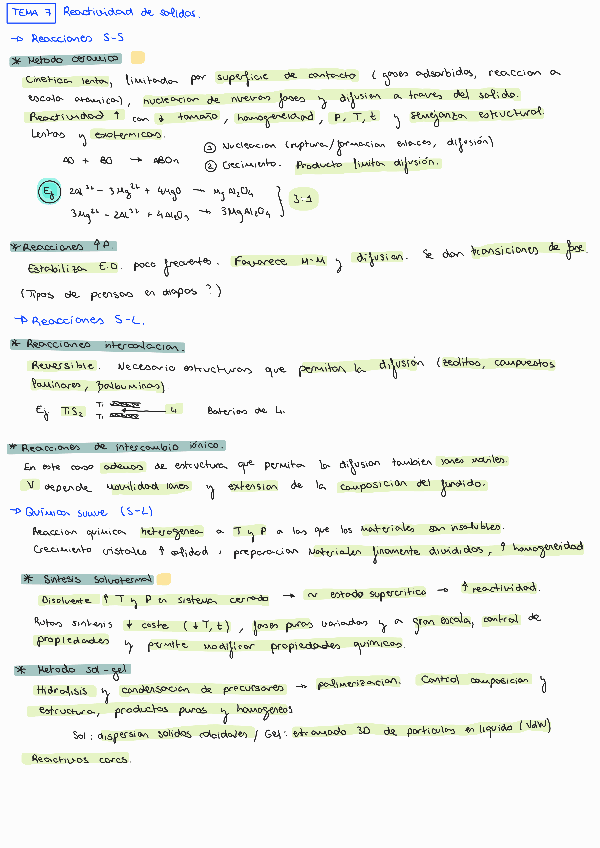 TEMA 7 Reactividad de solidos.
→ Reacciones S-S
* Metodo ceramico
Cinética lenta, limitada por superficie de contacto (gases adsorbidos, reaccion a
escala atomica), nucleacion de nuevas fases y difusion a traves del solido.
Reactividad ↑ con ↓ tamaño, homogeneidad, P, T, t y semejanza estructural.
Lentas y exotermicas.
① Nucleacion (ruptura/formacion enlaces, difusión)
AO + BO → ABOn
② Crecimiento. Producto limita difusión.
Ej 2Al³⁺ - 3Mg²⁺ + 4MgO → MgAl₂O₄
3Mg²⁺ - 2Al³⁺ + 4Al₂O₃ → 3MgAl₂O₄ } 3:1
* Reacciones ↑P
Estabiliza E.O. poco frecuentes. Favorece M-M y difusion. Se dan transiciones de fase.
(Tipos de prensas en diapos?)
→ Reacciones S-L.
* Reacciones intercalacion.
Reversible. Necesario estructuras que permitan la difusión (zeolitas, compuestos
laminares, βalbuminas)
Ej TiS₂ Ti Ti Li Baterias de Li.
* Reacciones de intercambio iónico.
En este caso ademas de estructura que permita la difusion tambien iones moviles.
V depende movilidad iones y extension de la composicion del fundido.
→ Química suave (S-L)
Reaccion quimica heterogenea a T y P a las que los materiales son insolubles.
Crecimiento cristales ↑ calidad, preparacion materiales finamente divididos, ↑ homogeneidad
* Sintesis Solvotermal
Disolvente ↑ T y P en sistema cerrado → ~ estado supercritico → ↑ reactividad.
Rutas sintesis ↓ coste (↓T, t), fases puras variadas y a gran escala, control de
propiedades y permite modificar propiedades quimicas.
* Metodo sol-gel
Hidrolisis y condensacion de precursores → polimerizacion. Control composicion y
estructura, productos puros y homogeneos
Sol: dispersion solidos coloidales / Gel: entramado 3D de particulas en liquido (VdW)
Reactivos caros.